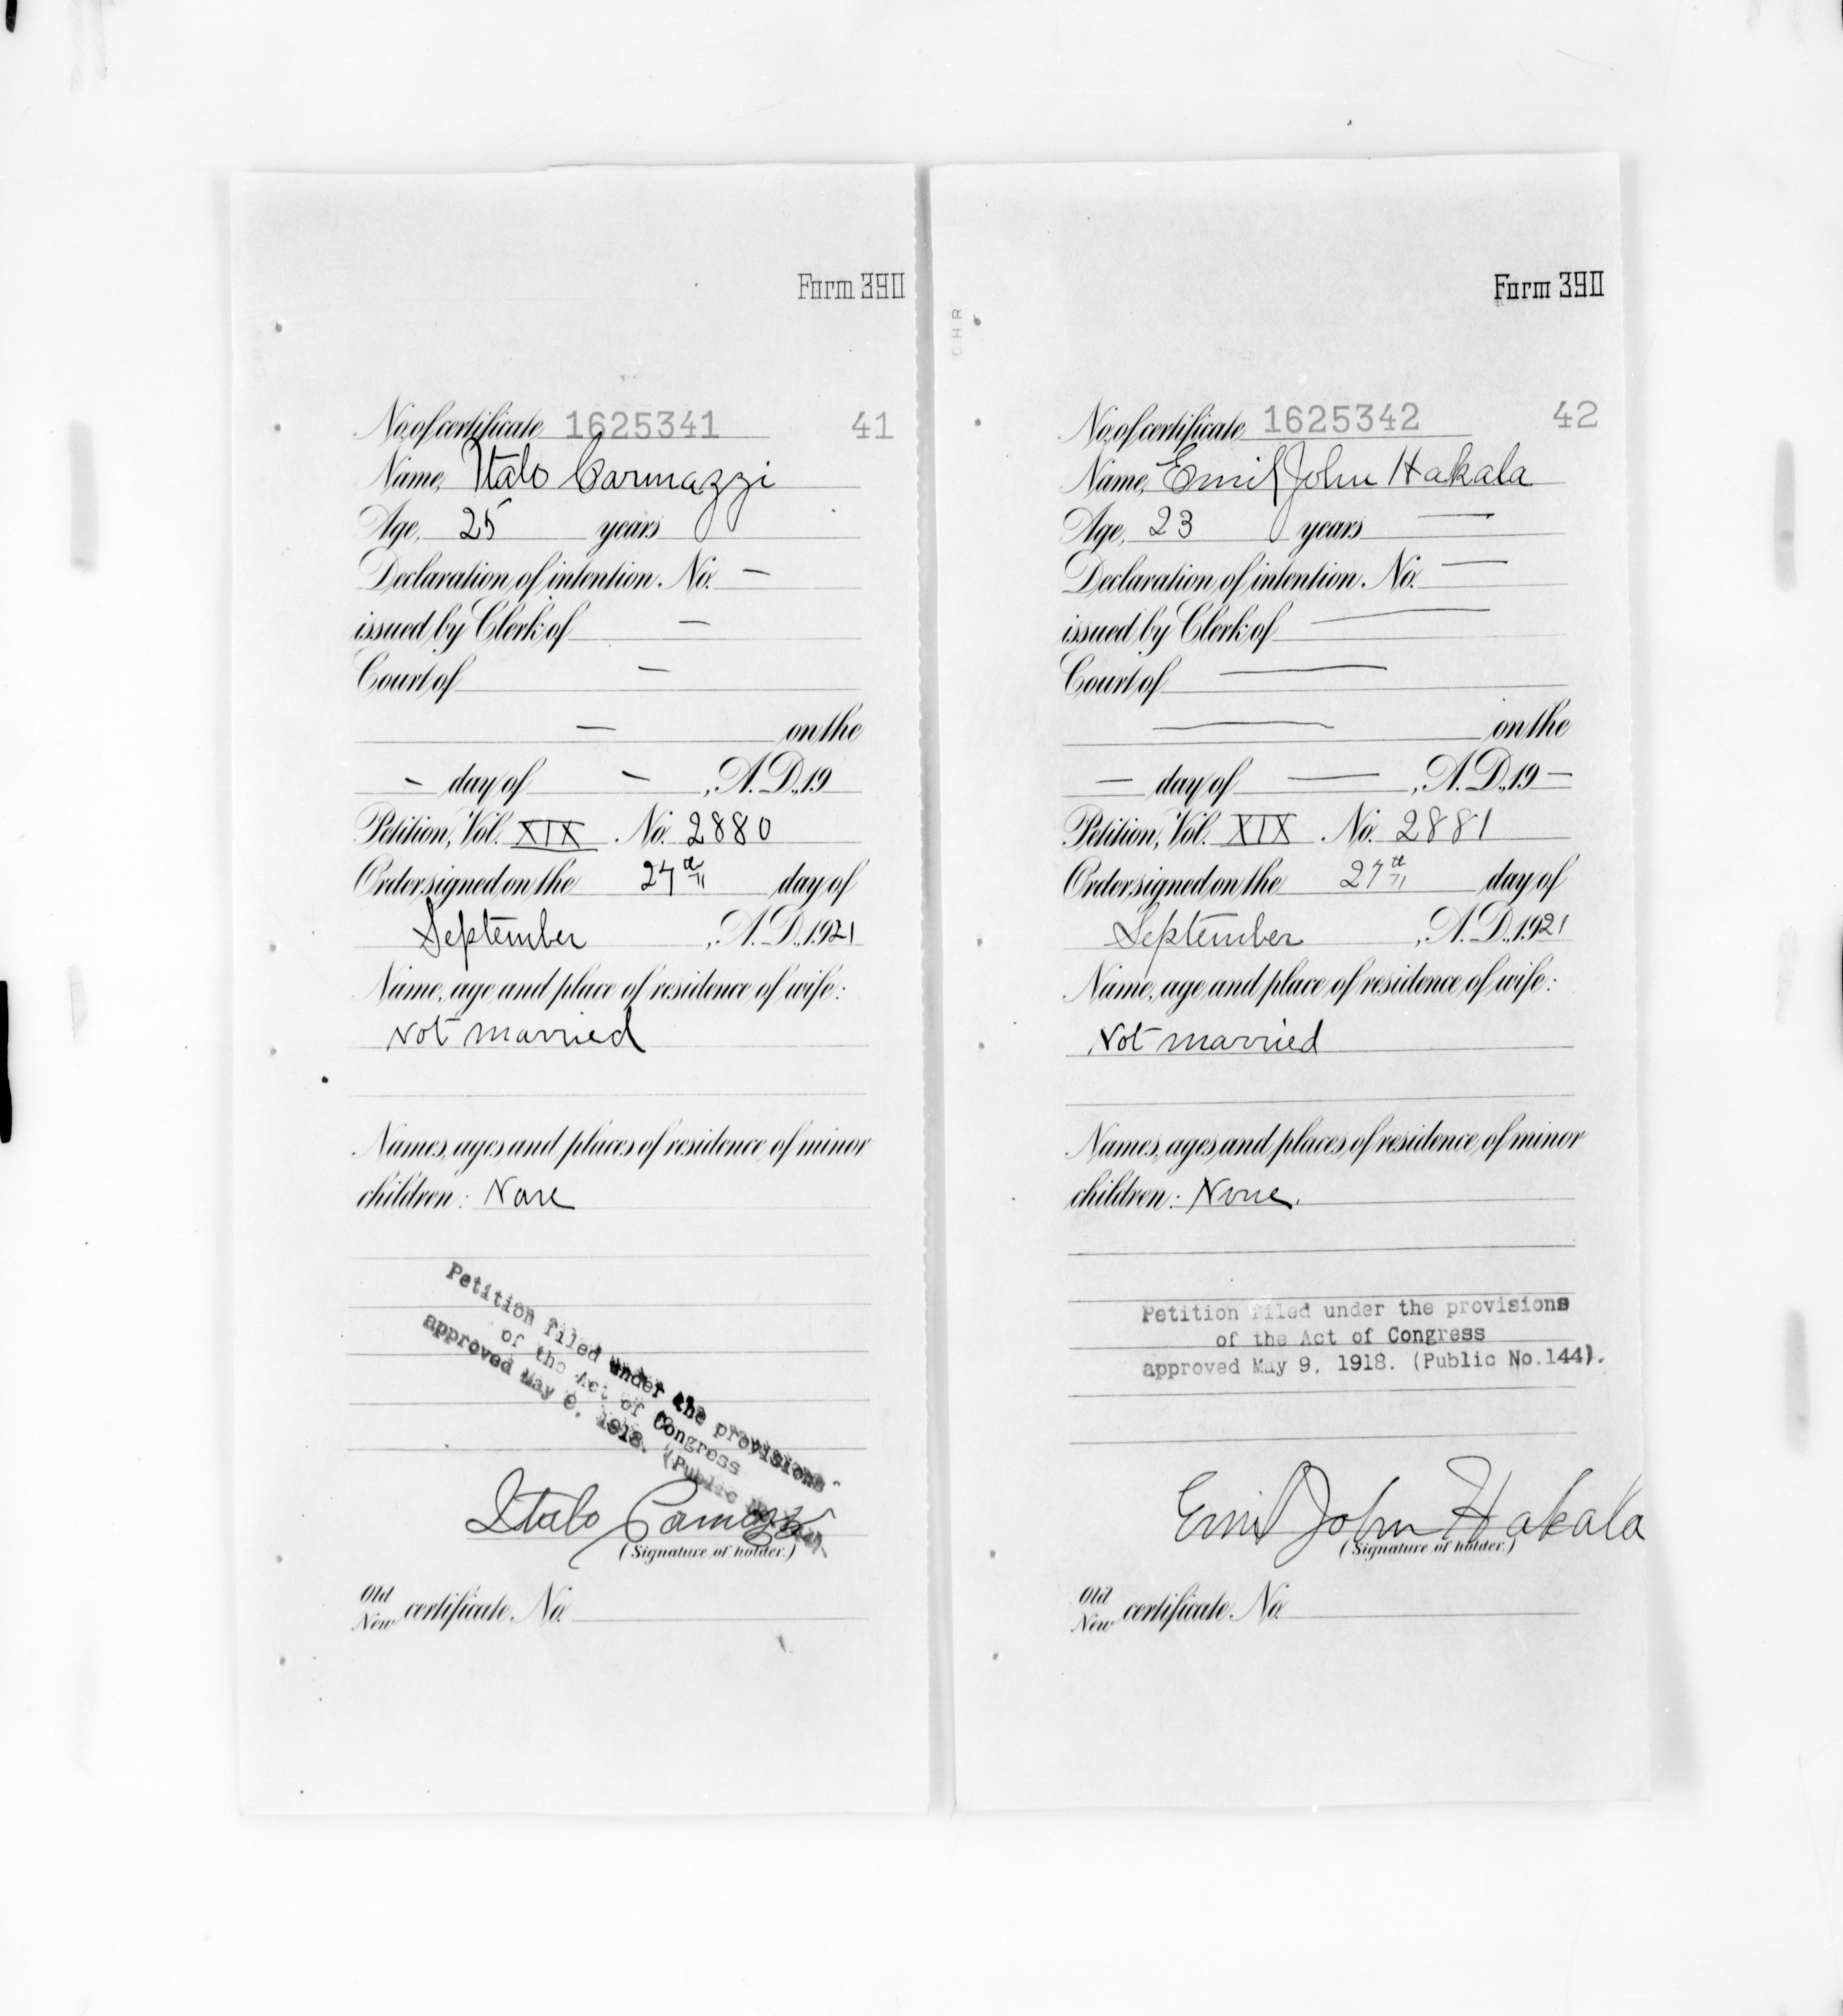 Form 390
No. of certificate 1625341 41
Name, Italo Carmazzi
Age, 25 years
Declaration of intention No. —
issued by Clerk of —
Court of —
— on the
— day of —, A.D., 19
Petition, Vol. XIX No. 2880
Order signed on the 27th day of
September, A.D., 1921
Name, age and place of residence of wife:
Not married
Names, ages and places of residence of minor
children: None
Petition filed under the provisions
of the Act of Congress
approved May 9, 1918. (Public
Italo Carmazzi
(Signature of holder.)
Old
New certificate No.
CHR
Form 390
No. of certificate 1625342 42
Name, Emil John Hakala
Age, 23 years —
Declaration of intention No. —
issued by Clerk of —
Court of —
— on the
— day of —, A.D., 19—
Petition, Vol. XIX No. 2881
Order signed on the 27th day of
September, A.D., 1921
Name, age and place of residence of wife:
Not married
Names, ages and places of residence of minor
children: None.
Petition filed under the provisions
of the Act of Congress
approved May 9, 1918. (Public No.144).
Emil John Hakala
(Signature of holder.)
Old
New certificate No.